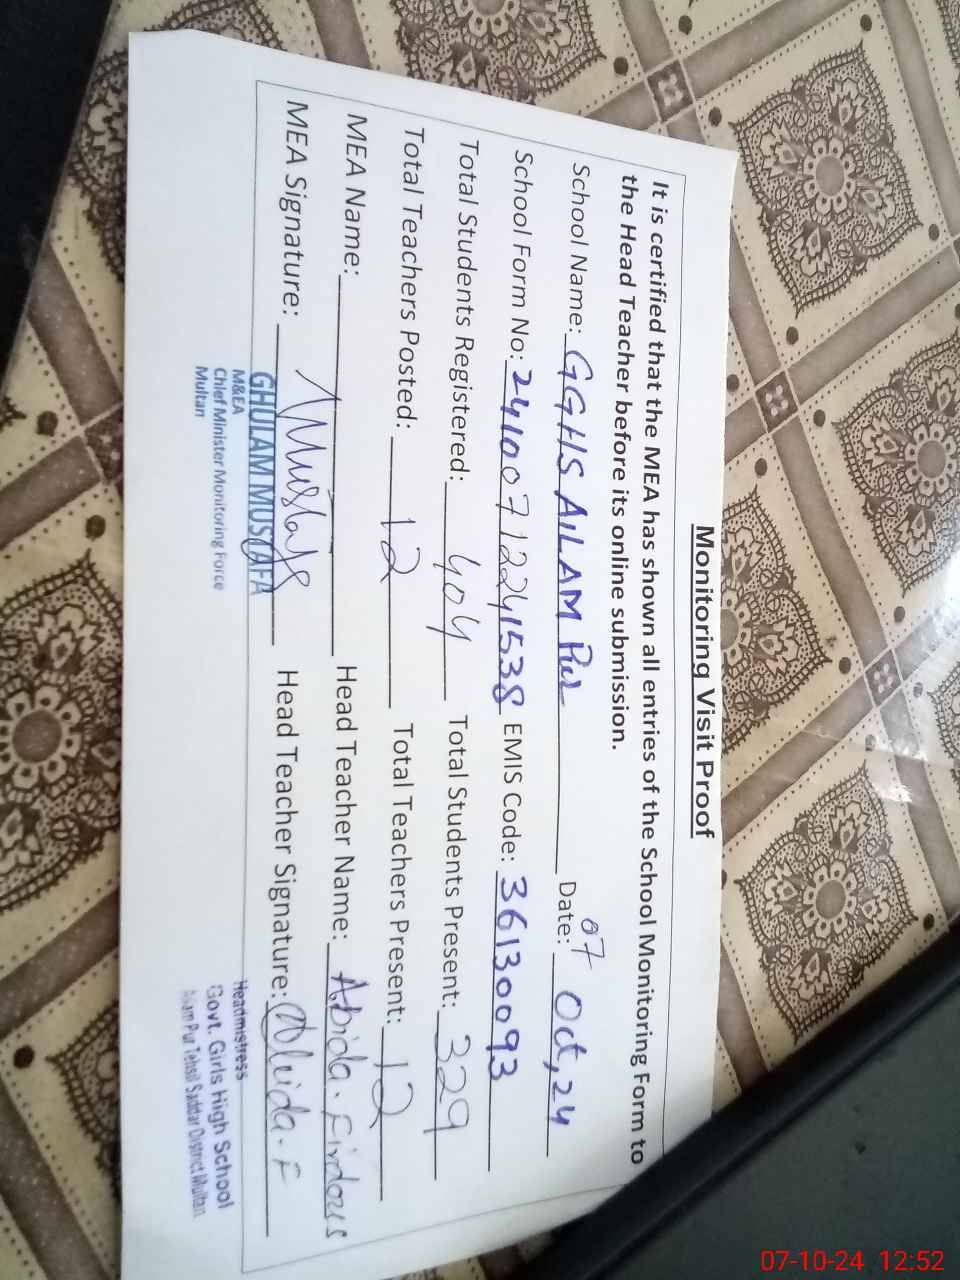 Monitoring Visit Proof
It is certified that the MEA has shown all entries of the School Monitoring Form to
the Head Teacher before its online submission.
School Name: GGHS AILAM Pur Date: 07 Oct, 24
School Form No: 241007122241538 EMIS Code: 36130093
Total Students Registered: 404 Total Students Present: 329
Total Teachers Posted: 12 Total Teachers Present: 12
MEA Name: Head Teacher Name: Abida. Firdous
MEA Signature: Head Teacher Signature: Abida. F
GHULAM MUSTAFA
M&EA
Chief Minister Monitoring Force
Multan
Headmistress
Govt. Girls High School
Pur Tehsil Saddar District Multan
07-10-24 12:52